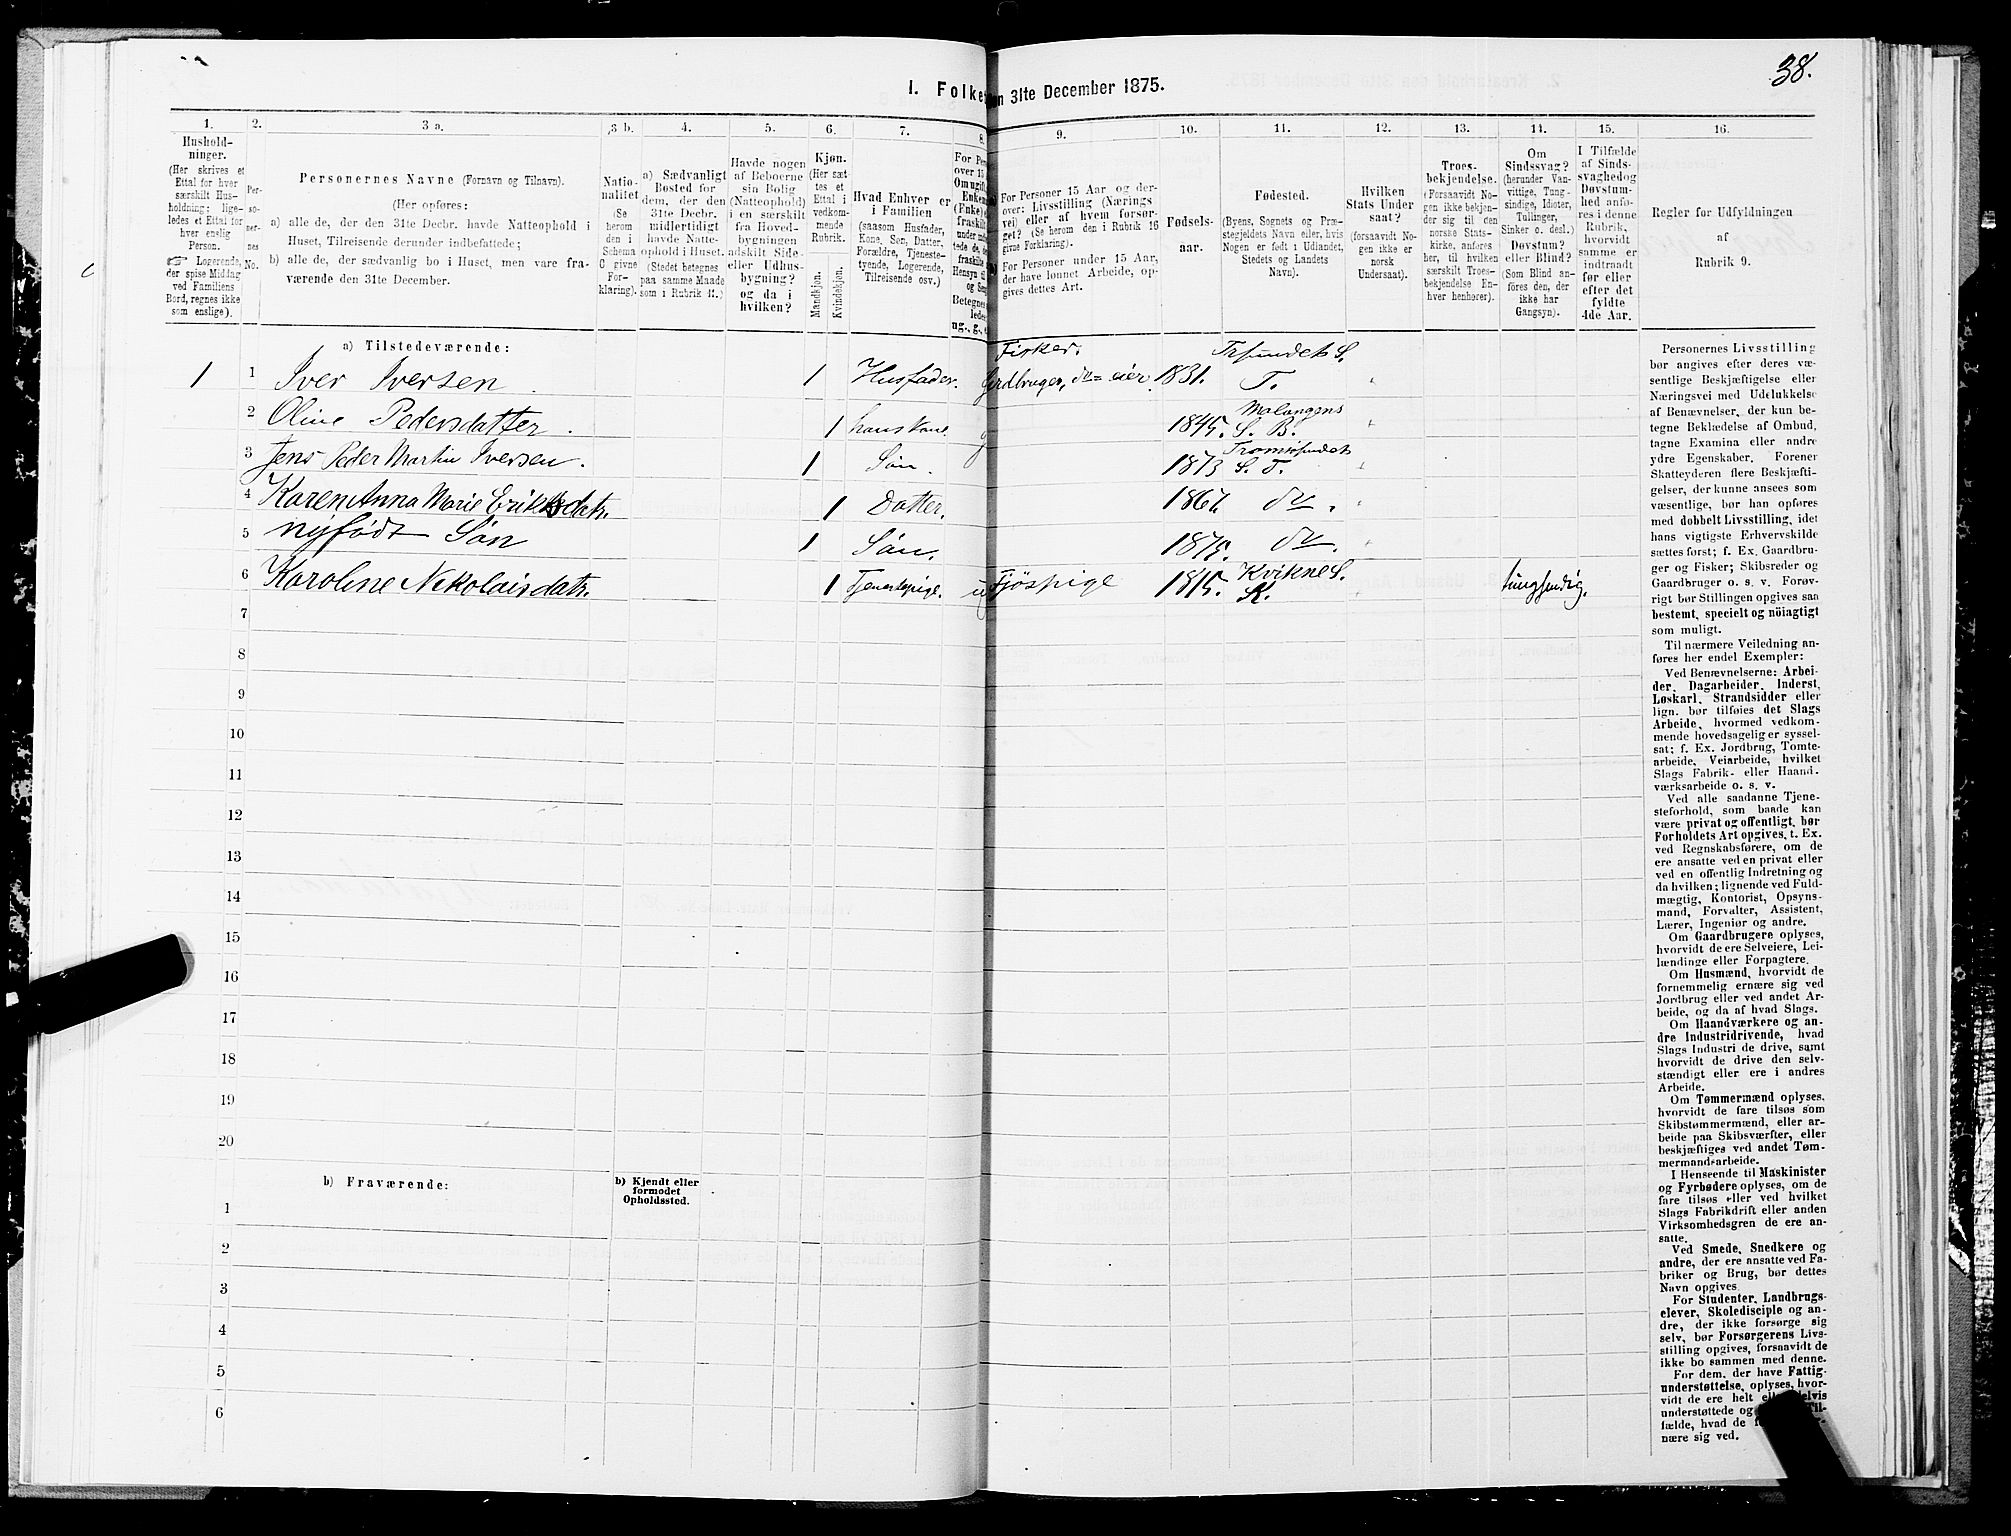 38.
I. Folke
en 31te December 1875.
1. 2. 3 a. 3 b. 4. 5. 6. 7. 8. 9. 10. 11. 12. 13. 14. 15. 16.
Hushold-
ninger.
(Her skrives et
Ettal for hver
særskilt Hus-
holdning; lige-
ledes et Ettal for
hver enslig
Person.
☞ Logerende,
der spise Middag
ved Familiens
Bord, regnes ikke
som enslige).
Per-
so-
ner-
nes
No.
Personernes Navne (Fornavn og Tilnavn).
(Her opføres:
a) alle de, der den 31te Decbr. havde Natteophold i
Huset, Tilreisende derunder indbefattede;
b) alle de, der sædvanlig bo i Huset, men vare fra-
værende den 31te December.
Natio-
nalitet
(Se
herom
den i
Schema
C givne
For-
klaring).
a) Sædvanligt
Bosted for
dem, der den
31te Decbr.
midlertidigt
havde Natte-
ophold i Huset.
(Stedet betegnes
paa samme Maade
som i Rubrik 11.)
Havde nogen
af Beboerne
sin Bolig
(Natteophold)
i en særskilt
fra Hoved-
bygningen
adskilt Side-
eller Udhus-
bygning?
og da i
hvilken?
Kjøn.
(Her sæt-
tes et
Ettal i
vedkom-
mende
Rubrik.
Mandkjøn.
Kvindekjøn.
Hvad Enhver er
i Familien
(saasom Husfader,
Kone, Søn, Datter,
Forældre, Tjeneste-
tyende, Logerende,
Tilreisende osv.)
For Pe
over 15
Om ugift,
Enken
(Enke) e
fraskilt
under indb
tede de, de
fraskilte
Hensyn ti
og Sen
Betegnes
ledes
ug., g., e
For Personer 15 Aar og der-
over: Livsstilling (Nærings
vei) eller af hvem forsør-
get? (Se herom den i Rubrik 16
givne Forklaring).
For Personer under 15 Aar,
der have lønnet Arbeide, op-
gives dettes Art.
Fødsels-
aar.
Fødested.
(Byens, Sognets og Præ-
stegjeldets Navn eller, hvis
Nogen er født i Udlandet,
Stedets og Landets
Navn).
Hvilken
Stats Under
saat?
(forsaavidt No-
gen ikke er
norsk
Undersaat).
Troes-
bekjendelse.
(Forsaavidt No-
gen ikke bekjen-
der sig til den
norske Stats-
kirke, anføres
her, til hvilken
særskilt Troes-
bekjendelse En-
hver henhører).
Om
Sindssvag?
(herunder Van-
vittige, Tung-
sindige, Idioter,
Tullinger,
Sinker o. desl.)
Døvstum?
eller Blind?
(Som Blind an-
føres den, der
ikke har
Gangsyn).
I Tilfælde
af Sinds-
svaghed og
Døvstum-
hed anfø-
res i denne
Rubrik,
hvorvidt
samme er
indtraadt
før eller
efter det
fyldte
4de Aar.
Regler for Udfyldningen
af
Rubrik 9.
a) Tilstedeværende:
Fisker. Trsundets S.
1 1 Iver Iversen. 1 Husfader. Jordbruger, do eier 1831. T.
2 Oline Pedersdatter. 1 hans Kone g 1845. Malangens S. B.
3 Jens Peder Martin Iversen. 1 Søn. 1873 Tromsøsundets S. T.
4 Karen Anna Marie Eriksdatr. 1 Datter. 1867. do.
5 nyfødt Søn 1 Søn. 1875. do.
6 Karoline Nikolaisdatr. 1 Tjenestepige. u Fjøspige 1815. Kvikne S. K. tungsindig.
7
8
9
10
11
12
13
14
15
16
17
18
19
20
b) Fraværende:
b) Kjendt eller
formodet
Opholdssted.
1
2
3
4
5
6
Personernes Livsstilling
bør angives efter deres væ-
sentlige Beskjæftigelse eller
Næringsvei med Udelukkelse
af Benævnelser, der kun be-
tegne Beklædelse af Ombud,
tagne Examina eller andre
ydre Egenskaber. Forener
Skatteyderen flere Beskjæfti-
gelser, der kunne ansees som
væsentlige, bør han opføres
med dobbelt Livsstilling, idet
hans vigtigste Erhvervskilde
sættes først; f. Ex. Gaardbru-
ger og Fisker; Skibsreder og
Gaardbruger o. s. v. Forøv-
rigt bør Stillingen opgives saa
bestemt, specielt og nöiagtigt
som muligt.
Til nærmere Veiledning an-
føres her endel Exempler:
Ved Benævnelserne: Arbei-
der, Dagarbeider, Inderst,
Løskarl, Strandsidder eller
lign. bør tilføies det Slags
Arbeide, hvormed vedkom-
mende hovedsagelig er syssel-
sat; f. Ex. Jordbrug, Tomte-
arbeide, Veiarbeide, hvilket
Slags Fabrik- eller Haand-
værksarbeide o. s. v.
Ved alle saadanne Tjene-
steforhold, som baade kan
være privat og offentligt, bør
Forholdets Art opgives, t. Ex.
ved Regnskabsførere, om de
ere ansatte ved en privat eller
ved en offentlig Indretning og
da hvilken; lignende ved Fuld-
mægtig, Kontorist, Opsyns-
mand, Forvalter, Assistent,
Lærer, Ingeniør og andre.
Om Gaardbrugere oplyses,
hvorvidt de ere Selveiere, Lei-
lændinge eller Forpagtere.
Om Husmænd, hvorvidt de
fornemmelig ernære sig ved
Jordbrug eller ved andet Ar-
beide, og da af hvad Slags.
Om Haandværkere og an-
dre Industridrivende, hvad
Slags Industri de drive, samt
hvorvidt de drive den selv-
stændigt eller ere i andres
Arbeide.
Om Tømmermænd oplyses,
hvorvidt de fare tilsøs som
Skibstømmermænd, eller ar-
beide paa Skibsværfter, eller
beskjæftiges ved andet Tøm-
mermandsarbeide.
I Henseende til Maskinister
og Fyrbødere oplyses, om de
fare tilsøs eller ved hvilket
Slags Fabrikdrift eller anden
Virksomhedsgren de ere an-
satte.
Ved Smede, Snedkere og
andre, der ere ansatte ved Fa-
briker og Brug, bør dettes
Navn opgives
For Studenter, Landbrugs-
elever, Skoledisciple og an-
dre, der ikke forsørge sig
selv, bør Forsørgerens Livs-
stilling opgives, forsaavidt de
ikke bo sammen med denne.
For dem, der have Fattig-
understøttelse, oplyses, hvor-
vidt de ere helt elvis
understøttede og Til-
fælde, hvad de
nære sig ved.